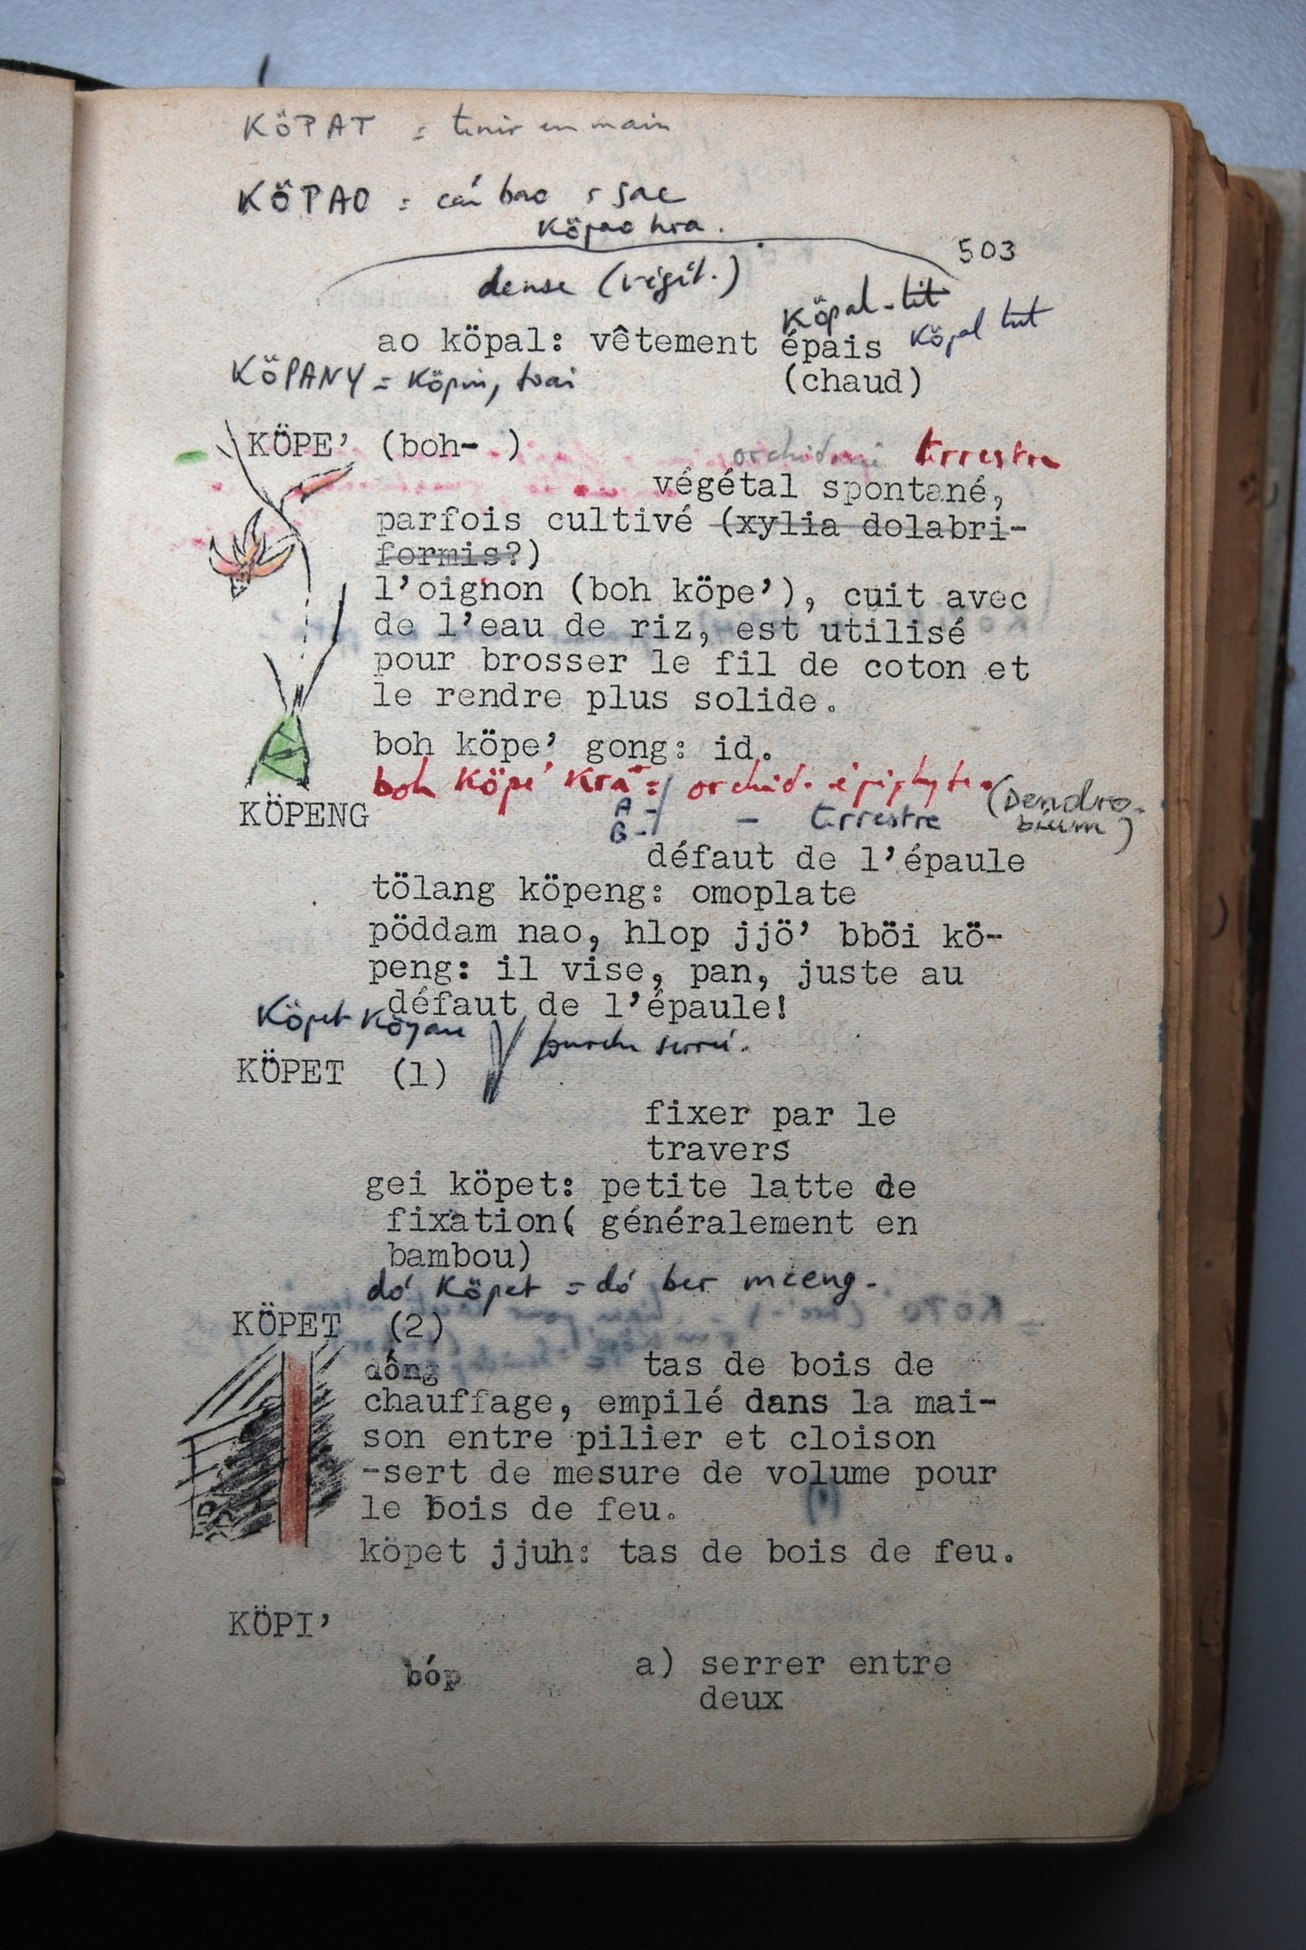 KÖPAT = tenir en main
KÖPAO = cái bao, sac
Köpao hra.
503
dense (végét.)
Köpal-tit
ao köpal: vêtement épais Köpal tut
KÖPANY = Köpin,
(chaud)
KÖPE’ (boh- ) terrestre
végétal spontané,
parfois cultivé (xylia dolabri-
formis?)
l’oignon (boh köpe’), cuit avec
de l’eau de riz, est utilisé
pour brosser le fil de coton et
le rendre plus solide.
boh köpe’ gong: id.
boh Köpe’ Kra = orchid. épiphyte (Dendro-
KÖPENG A - B - — terrestre bium)
défaut de l’épaule
tölang köpeng: omoplate
pöddam nao, hlop jjö’ bböi kö-
peng: il vise, pan, juste au
défaut de l’épaule!
Köpet Köyau
KÖPET (1)
fixer par le
travers
gei köpet: petite latte de
fixation( généralement en
bambou)
dó Köpet = dó ber mceng.
KÖPET (2)
dông tas de bois de
chauffage, empilé dans la mai-
son entre pilier et cloison
-sert de mesure de volume pour
le bois de feu.
köpet jjuh: tas de bois de feu.
KÖPI’
bóp a) serrer entre
deux